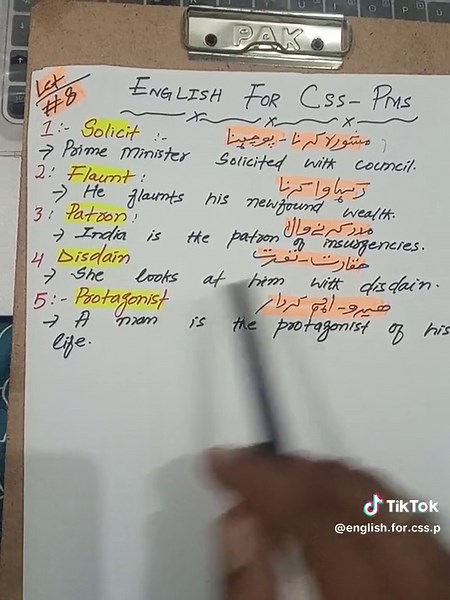 PAK
Lec
#8
ENGLISH FOR CSS - PMS
1 :- Solicit :- مشورہ کرنا - پوچھنا
→ Prime Minister Solicited with council.
2: Flaunt: دکھاوا کرنا
→ He flaunts his newfound wealth.
3: Patron: مدد کرنے والا
→ India is the patron of insurgencies.
4 Disdain حقارت - نفرت
→ She looks at him with disdain.
5:- Protagonist ہیرو - اہم کردار
→ A man is the protagonist of his
life.
TikTok
@english.for.css.p